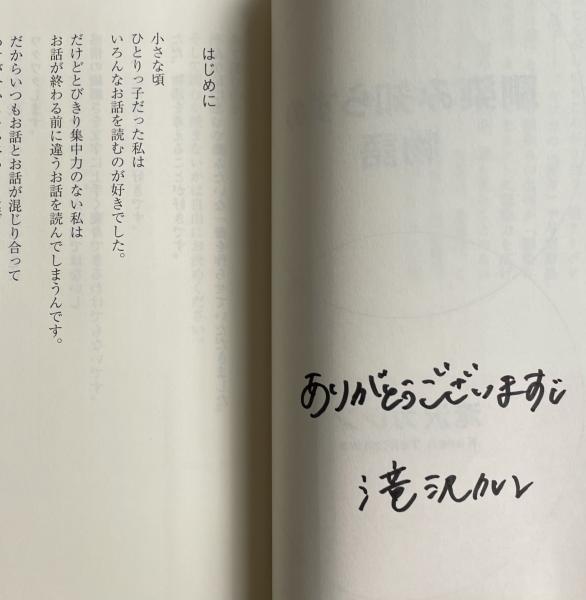 ありがとうございます
滝沢カレン
はじめに
小さな頃
ひとりっ子だった私は
いろんなお話を読むのが好きでした。
だけどとびきり集中力のない私は
お話が終わる前に違うお話を読んでしまうんです。
だからいつもお話とお話が混じり合って